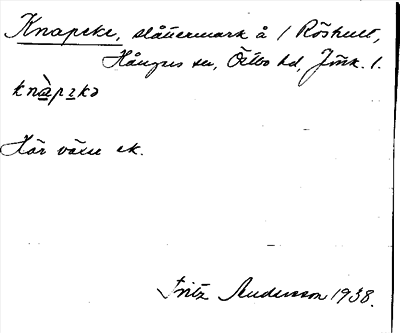 Knapeke, slåttermark å 1 Röshult,
Hångers sn, Östbo hd, Jönk. l.
knàpɛkə
Här växer ek.
Fritz Andersson 1938.